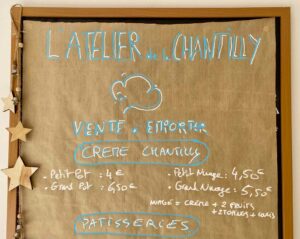 L'ATELIER de la CHANTILLY
VENTE à EMPORTER
CREME CHANTILLY
• Petit Pot : 4€
• Grand Pot : 6,50€
• Petit Nuage : 4,50€
• Grand Nuage : 5,50€
NUAGE = CREME + 2 FRUITS
PATISSERIES